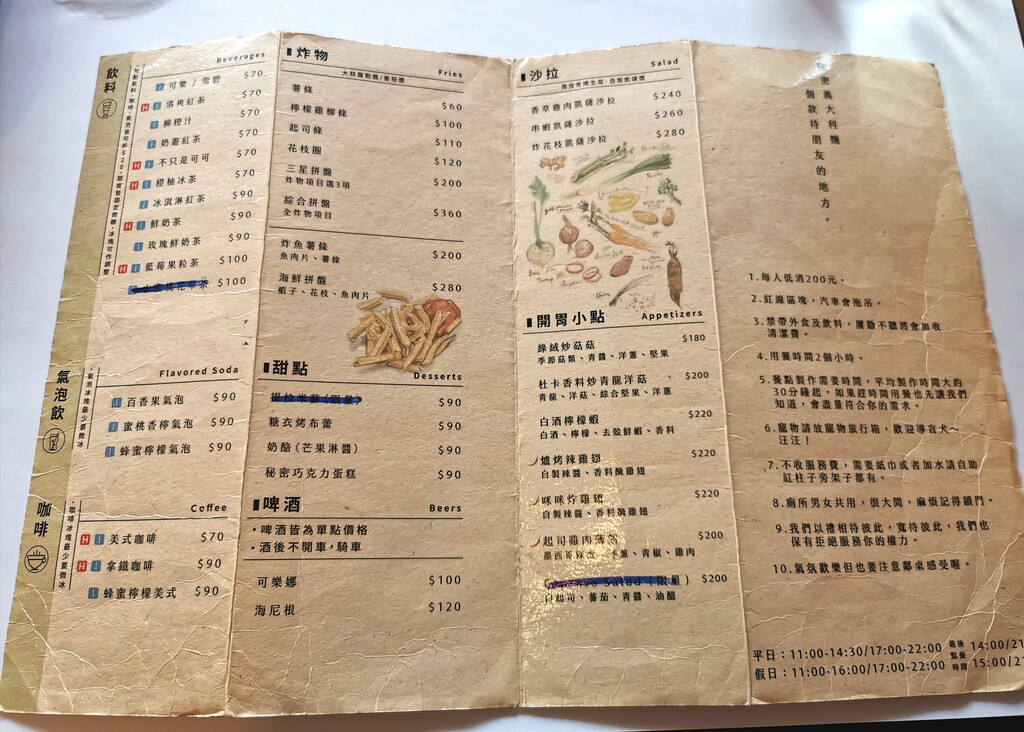 飲料
Beverages
可樂 / 雪碧 $70
H I 清爽紅茶 $70
I 柳橙汁 $70
I 奶蓋紅茶 $70
H I 不只是可可 $70
H I 橙柚冰茶 $70
I 冰淇淋紅茶 $90
H I 鮮奶茶 $90
I 玫瑰鮮奶茶 $90
H I 藍莓果粒茶 $100
$100
氣泡飲
・氣泡冰塊最少要微冰
Flavored Soda
I 百香果氣泡 $90
I 蜜桃香檸氣泡 $90
I 蜂蜜檸檬氣泡 $90
咖啡
・咖啡冰塊最少要微冰
Coffee
H I 美式咖啡 $70
H I 拿鐵咖啡 $90
I 蜂蜜檸檬美式 $90
炸物
Fries
薯條 $60
檸檬雞柳條 $100
起司條 $110
花枝圈 $120
三星拼盤 $200
炸物項目選3項
綜合拼盤 $360
全炸物項目
炸魚薯條 $200
魚肉片、薯條
海鮮拼盤 $280
蝦子、花枝、魚肉片
甜點
Desserts
提拉米蘇(限量) $90
糖衣烤布蕾 $90
奶酪(芒果淋醬) $90
秘密巧克力蛋糕 $90
啤酒
Beers
・啤酒皆為單點價格
・酒後不開車,騎車
可樂娜 $100
海尼根 $120
沙拉
Salad
香草雞肉凱薩沙拉 $240
串蝦凱薩沙拉 $260
炸花枝凱薩沙拉 $280
開胃小點
Appetizers
綠絨炒菇菇 $180
季節菇類、青醬、洋蔥、堅果
杜卡香料炒青龍洋菇 $200
青龍、洋菇、綜合堅果、洋蔥
白酒檸檬蝦 $220
白酒、檸檬、去殼鮮蝦、香料
爐烤辣雞翅 $220
自製辣醬、香料醃雞翅
咪咪炸雞翅 $220
自製辣醬、香料醃雞翅
起司雞肉薄餅 $200
洋蔥、青椒、雞肉
Salad (限量) $200
起司、蕃茄、青醬、油醋
義大利麵
個款待朋友的地方。
1.每人低消200元。
2.紅線區塊,汽車會拖吊。
3.禁帶外食及飲料,屢勸不聽將會加收
清潔費。
4.用餐時間2個小時。
5.餐點製作需要時間,平均製作時間大約
30分鐘起,如果趕時間用餐也先讓我們
知道,會盡量符合你的需求。
6.寵物請放寵物旅行箱,歡迎導盲犬～
汪汪!
7.不收服務費,需要紙巾或者加水請自助
紅柱子旁架子都有。
8.廁所男女共用,很大間,麻煩記得鎖門。
9.我們以禮相待彼此,寬待彼此,我們也
保有拒絕服務你的權力。
10.氣氛歡樂但也要注意鄰桌感受喔。
平日:11:00-14:30/17:00-22:00 最後 14:00/21
點餐
假日:11:00-16:00/17:00-22:00 時間 15:00/21